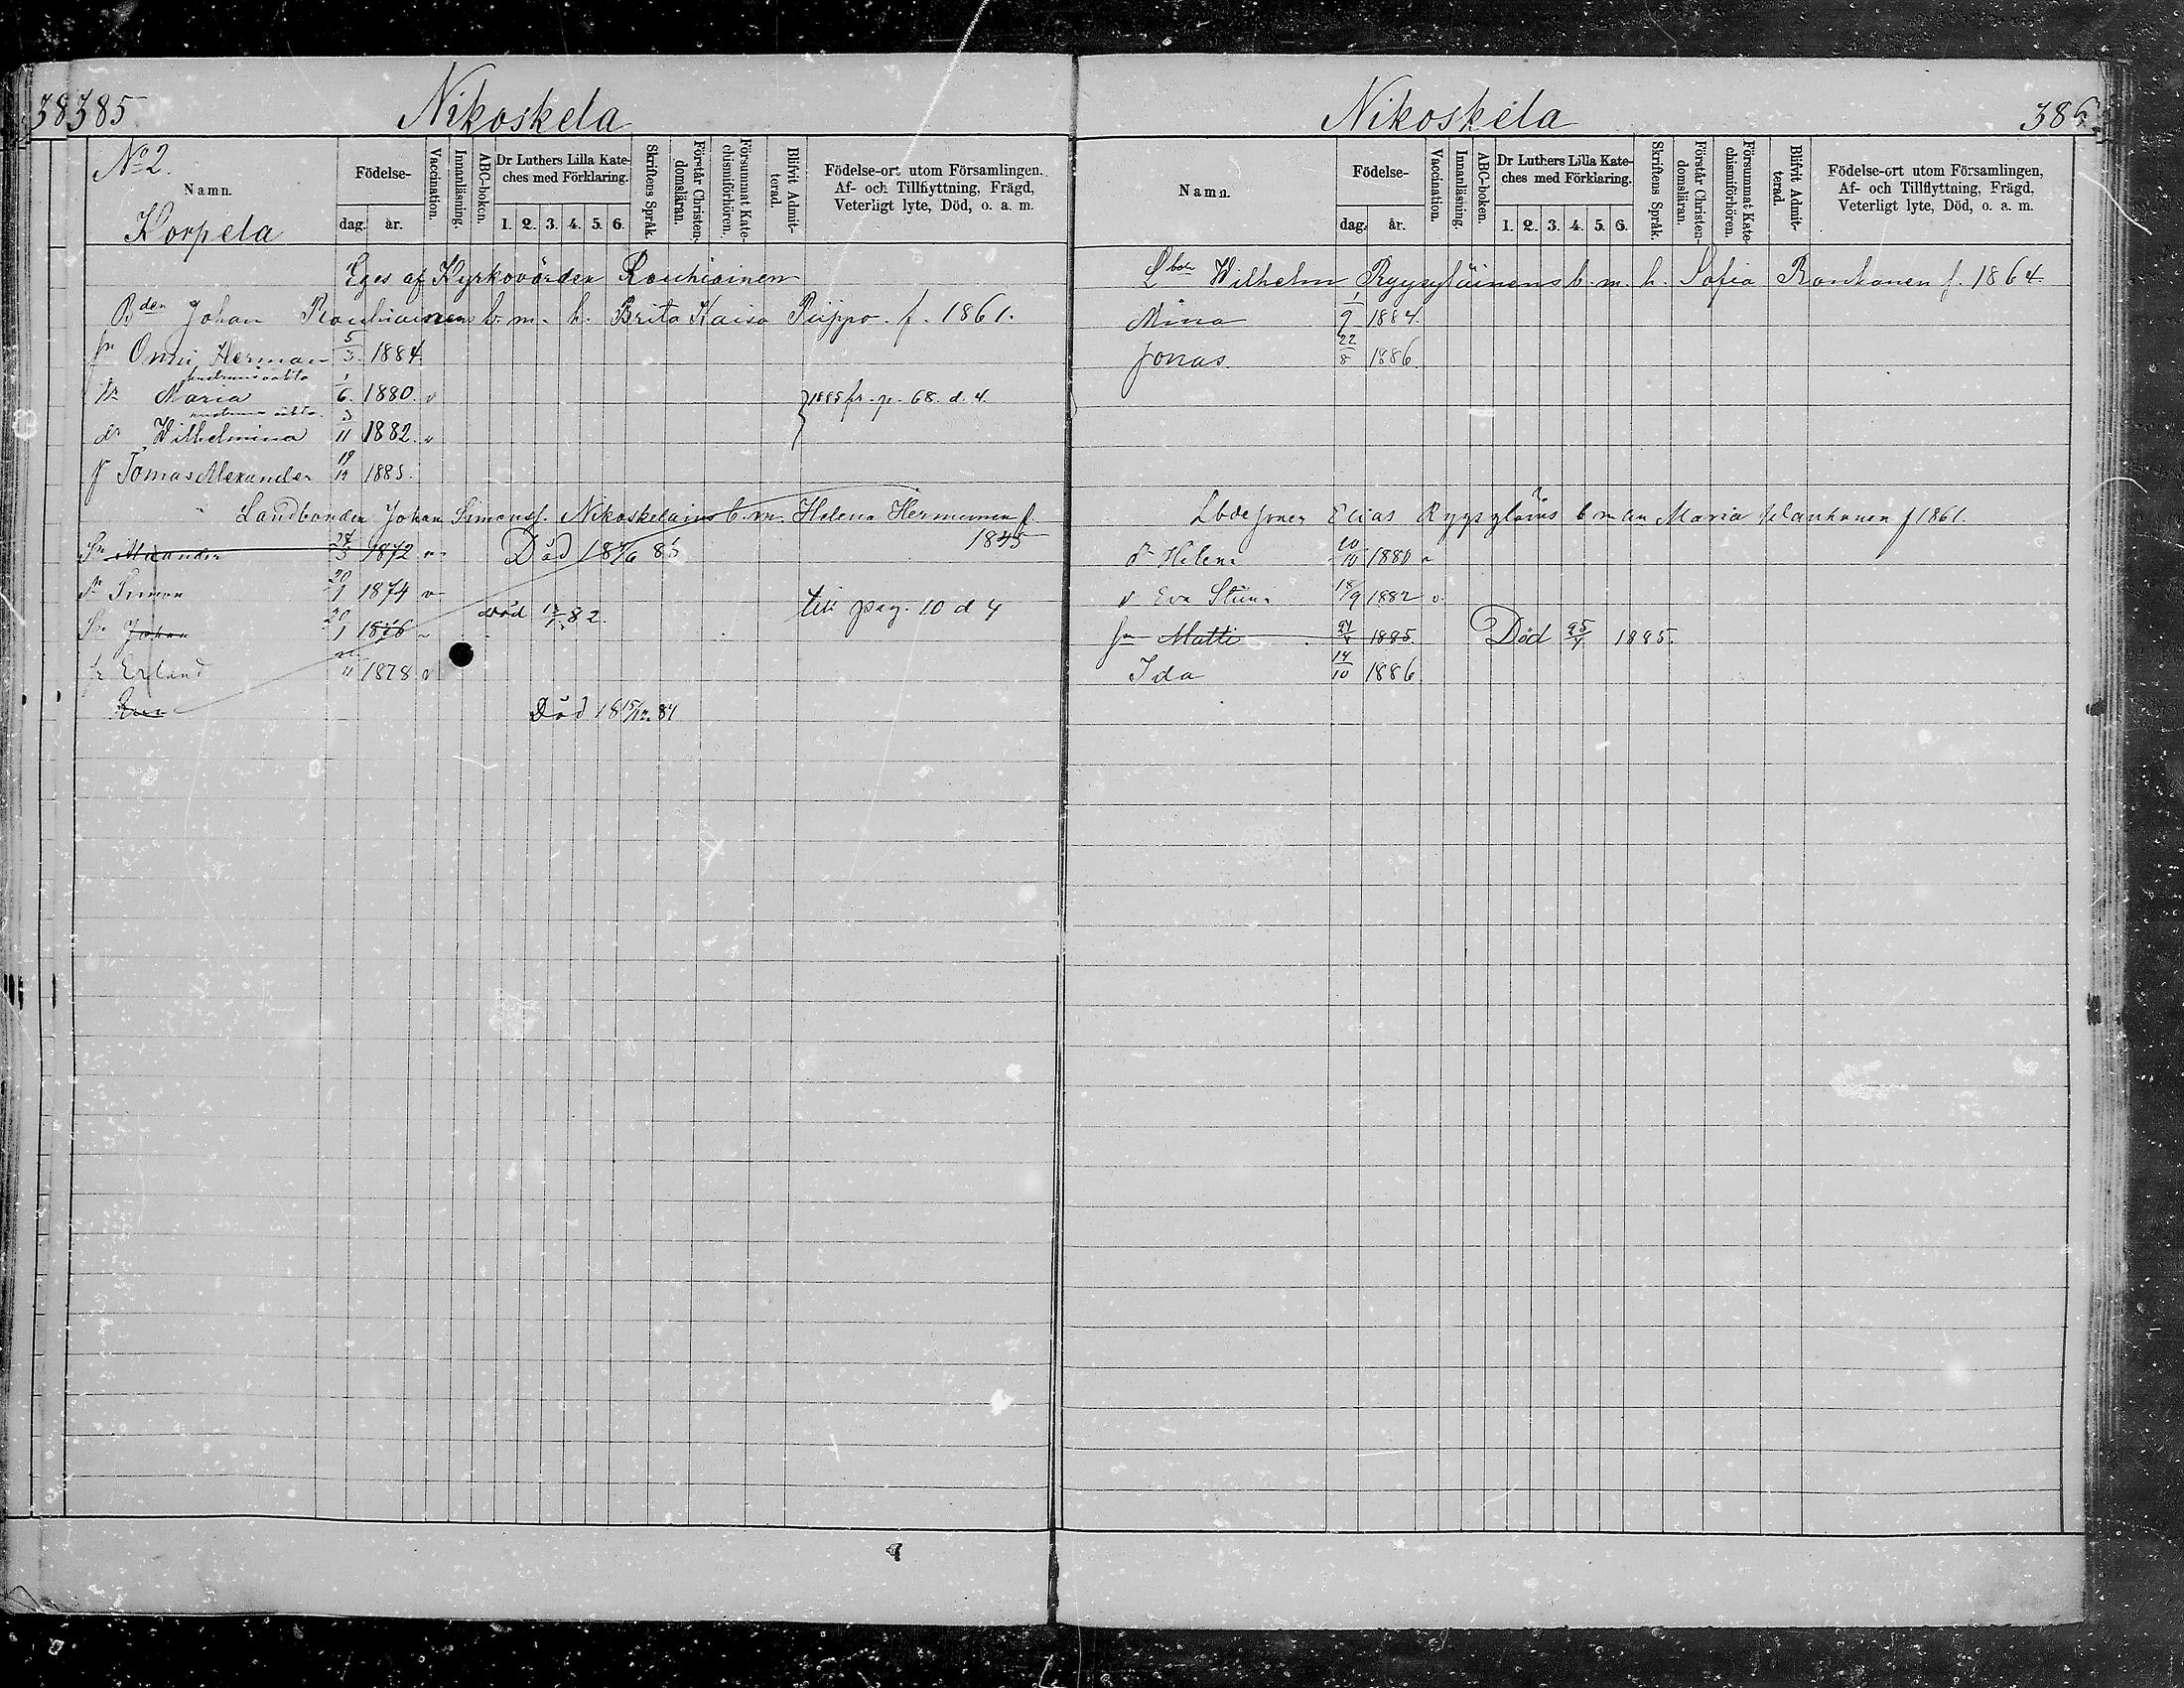 38 385 Nikoskela
No 2.
Namn. Födelse- dag. år. Vaccination. Innanläsning. ABC-boken. Dr Luthers Lilla Kateches med Förklaring. 1. 2. 3. 4. 5. 6. Skriftens Språk. Förstår Christendomsläran. Försummat Katechismiförhören. Blifvit Admitterad. Födelse-ort utom Församlingen. Af- och Tillflyttning, Frägd, Veterligt lyte, Död, o. a. m.
Korpela
Eges af Kyrkovärden Rouhiainen
Bden Johan Rouhiainens b. m. h. Brita Kaisa Piippo f. 1861.
sn Onni Herman 5/3 1884
Maria 1/6 1880 v } 1885 fr. p. 68. d. 4.
dr Wilhelmina 3/11 1882 v
Tomas Alexander 19/12 1885.
Landbonden Johan Simonss. Nikoskelains b. m. Helena Hermunen f. 1845
Sn Alexander 1872 v Död 85
Sn Simon 20/1 1874 v
Sn Johan 20/1 1876 v Död 82. till pag. 10 d 4
sn Erland 1878 v
Död 1815/12 84
Nikoskela 386
Namn. Födelse- dag. år. Vaccination. Innanläsning. ABC-boken. Dr Luthers Lilla Kateches med Förklaring. 1. 2. 3. 4. 5. 6. Skriftens Språk. Förstår Christendomsläran. Försummat Katechismiförhören. Blifvit Admitterad. Födelse-ort utom Församlingen, Af- och Tillflyttning, Frägd, Veterligt lyte, Död, o. a. m.
Lbde Wilhelm Ryysyläinens b. m. h. Sofia Ronkanen f. 1864.
Mina 1/9 1884.
Jonas 22/8 1886.
Lbde sonen Elias Ryysyläins b m an Maria f 1861.
dr Helena 20/10 1880 v
Eva Stiina 18/9 1882 v.
sn Matti 24/4 1885. Död 25/4 1885.
Ida 14/10 1886